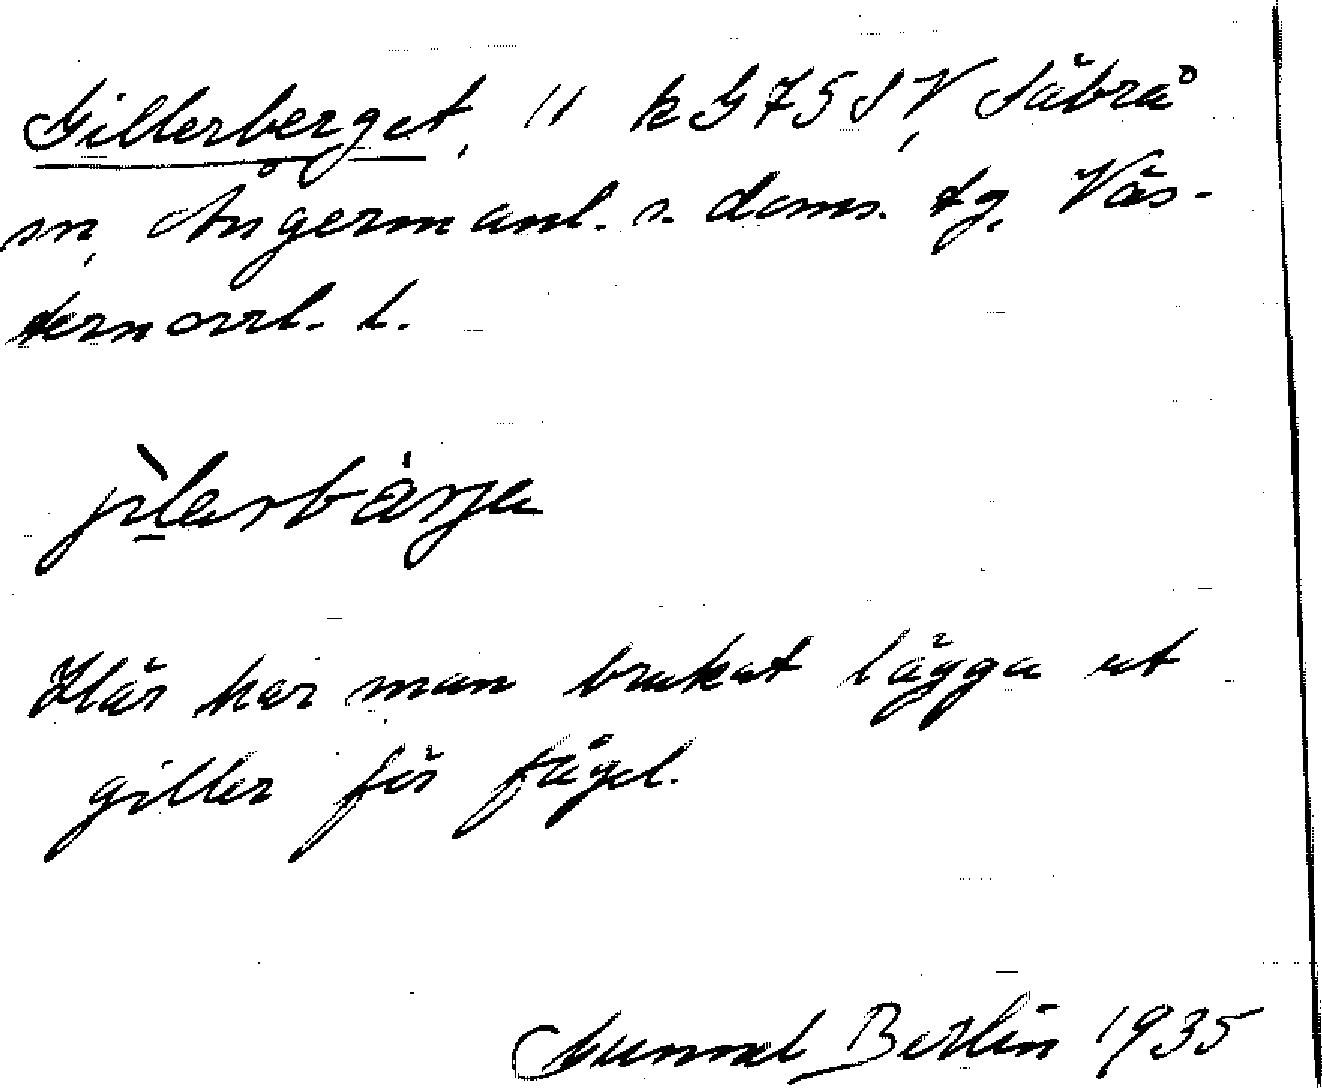 Gillerberget, 11 k G 75 SV, Säbrå
sn, Ångermanl. s. doms. tg. Väs-
ternorrl. l.
jìlarbárja
Här har man brukat lägga ut
giller för fågel.
Gunnel Berlin 1935